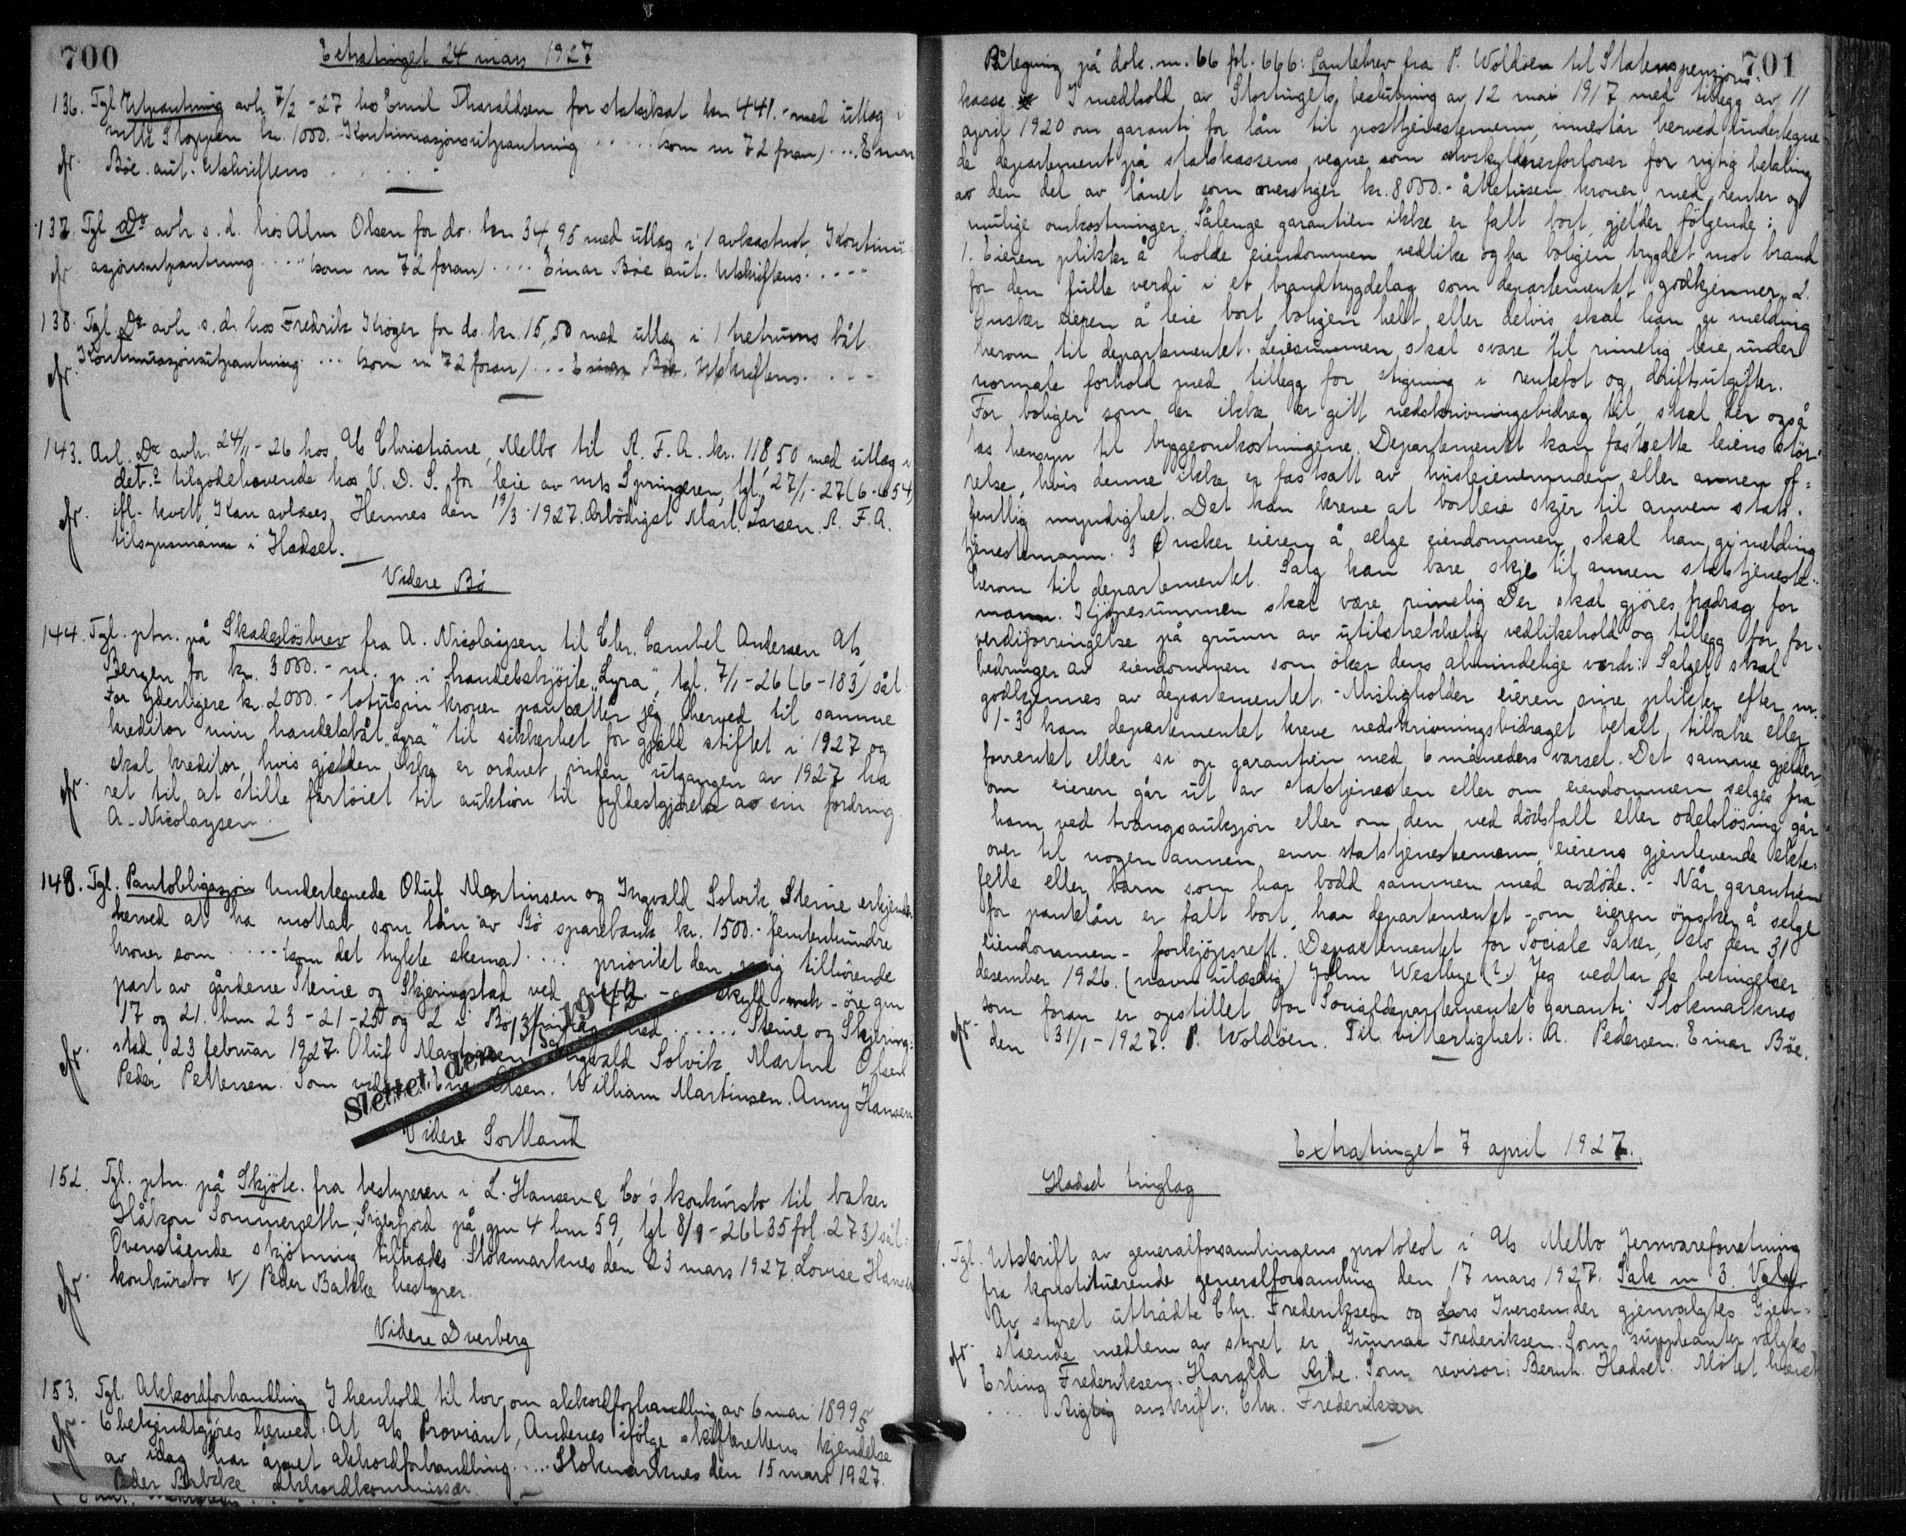 700
Extratinget 24 mars 1927
136. Tgl Utpantning avh. 7/2 - 27 hos Emil Tharaldsen for statskat kr. 441.- med utlæg i
m/k Sloppen kr. 1000.- Kontinuasjonsutpantning . . . . . (som nr 72 foran) . . . Einar
Bøe. aut. Utskriftens . . . . . .
137. Tgl Do avh s. d. hos Alm Olsen for do. kr. 34,95 med utlæg i 1 avkastnot, Kontinu-
asjonsutpantning . . . . (som nr 72 foran) . . . . Einar Bøe aut. Utskriftens . . . . .
138. Tgl Do avh s. d. hos Fredrik for do. kr. 15,50 med utlæg i 1 hetrums båt.
Kontinuasjonsutpantning . . . (som nr 72 foran) . . . Einar Bøe. Utskriftens. . . . .
143. Avl. Do avh. 24/11 - 26 hos A/s Christiane, Melbo til R. F. A. kr. 118,50 med utlæg i
det.s tilgodehavende hos V. D. S. for leie av m/s Springeren, tgl. 27/1 - 27 (6 - 654)
ifl. kvitt. Kan avlæses. Hennes den 19/3 - 1927. Ærbødigst Mart. Larsen. R. F. A.
tilsynsmann i Hadsel.
Videre Bø
144. Tgl. ptn. på Skadesløsbrev fra A. Nicolaysen til Chr. Cambel Andersen A/s,
Bergen for kr. 3000.- m. p. i handelsskjøite "Lyra", tgl. 7/1 - 26 (6 - 183) sål:
For yderligere kr. 2000.- totusin kroner pantsætter jeg herved til samme
kreditor min handelsbåt "Lyra" til sikkerhet for gjæld stiftet i 1927 og
skal kreditor, hvis gjelden ikke er ordnet inden utgangen av 1927 ha
ret til at stille fartøiet til auktion til fyldestgjørelse av sin fordring.
A. Nicolaysen
148. Tgl. Pantobligasjon Undertegnede Oluf Martinsen og Ingvald Solvik Steine erkjender
herved at ha mottat som lån av Bø sparebank kr. 1500.- femtenhundre
kroner som . . . . (som det trykte skema) . . . . prioritet den mig tilhørende
part av gårdene Steine og Skjeringstad ved skyld mrk - øre gnr
17 og 21. bnr 23 - 21 - 25 og 2 i Bø Steine og Skjering-
stad, 23 februar 1927. Oluf Martinsen Ingvald Solvik Martin Olsen
Peder Pettersen. Som Olsen. William Martinsen. Anny Hansen
Slettet den
Videre Sortland
152. Tgl. ptn. på Skjöte. fra bestyreren i L. Hansen & Co's konkursbo til baker
Håkon Sommerseth, Sigerfjord på gnr 4 bnr 59, tgl 8/9 - 26 (35 fol. 273) sål:
Ovenstående skjötning tiltrædes. Stokmarknes den 23 mars 1927. Lovise Hansens
konkursbo v/ Peder Bakke bestyrer.
Videre Dverberg
153. Tgl. Akkordforhandling I henhold til lov om akkordforhandling av 6 mai 1899 §
6 bekjendtgjøres herved: At A/s Proviant, Andenes ifølge skifterettens kjendelse
av idag har åpnet akkordforhandling . . . . Stokmarknes den 15 mars 1927.
Peder Bakke akkordkommissær

701
Påtegning på dok. nr. 66 fol. 666: Pantebrev fra P. Woldøen til Statens pensjons-
kasse I medhold av Stortingets beslutning av 12 mai 1917 med tillegg av 11
april 1920 om garanti for lån til posttjenestemenn, innestår herved undertegne-
de departement på statskassens vegne som selvskyldnerforlover for rigtig betaling
av den del av lånet som overstiger kr. 8000.- åttetusen kroner med renter og
mulige omkostninger. Sålenge garantien ikke er falt bort gjelder følgende:
1. Eieren plikter å holde eiendommen vedlike og ha boligen trygdet mot brand
for den fulle verdi i et brandtrygdelag som departementet godkjenner. 2.
Ønsker eieren å leie bort boligen helt eller delvis skal han gi melding
herom til departementet. Leiesummen skal svare til rimelig leie under
normale forhold med tillegg for stigning i rentefot og driftsutgifter.
For boliger som der ikke er gitt nedskrivningsbidrag til, skal der også
tas hensyn til byggeomkostningene. Departementet kan fastsette leiens stör-
relse, hvis denne ikke er fastsatt av husleienemnden eller annen of-
fentlig myndighet. Det kan kreve at bortleie skjer til annen stats-
tjenestemann. 3 Ønsker eieren å selge eiendommen skal han gi melding
herom til departementet. Salg kan bare skje til annen statstjeneste-
mann. Kjöpesummen skal være rimelig Der skal gjöres fradrag for
verdiforringelse på grunn av utilstrekkelig vedlikehold og tillegg for for-
bedringer av eiendommen som öker dens almindelige verdi. Salget skal
godkjennes av departementet. - Misligholder eieren sine plikter efter nr.
1 - 3 kan departementet kreve nedskrivningsbidraget betalt tilbake eller
forrentet eller si op garantien med 6 måneders varsel. Det samme gjelder,
om eieren går ut av statstjenesten eller om eiendommen selges fra
ham ved tvangsauksjon eller om den ved dödsfall eller odelslösing går
over til nogen annen enn statstjenestemann, eierens gjenlevende ekte-
felle eller barn som har bodd sammen med avdöde. - Når garantien
for pantelån er falt bort, har departementet - om eieren önsker å selge
eiendommen - forkjöpsrett. Departementet for Sociale Saker, Oslo den 31
desember 1926. (navn ulæslig) John Westbye (?) Jeg vedtar de betingelser
som foran er opstillet for Socialdepartementets garanti. Stokmarknes
den 31/1 - 1927. P. Woldöen. Til vitterlighet: A. Pedersen. Einar Böe.
Extratinget 7 april 1927.
Hadsel tinglag
. Tgl. Utskrift av generalforsamlingens protokol i A/s Melbo Jernvareforretning
fra konstituerende generalforsamling den 17 mars 1927. Sak nr 3. Valg
Av styret uttrådte Chr. Frederiksen og Lars Iversen der gjenvalgtes Gjen-
stående medlem av styret er Gunnar Frederiksen. Som suppleanter valgtes
Erling Frederiksen. Harald Ribe. Som revisor: Bernh. Hadsel. Mötet hævet
. . . . Rigtig avskrift: Chr. Frederiksen